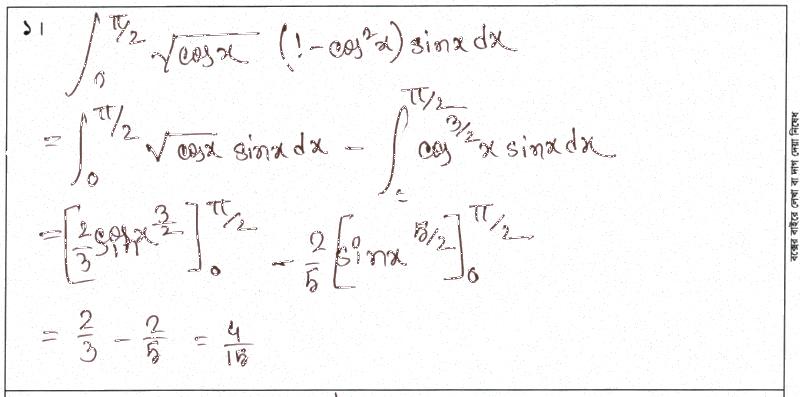 ১। ∫₀^{π/2} √cosx (1-cos²x) sinx dx
= ∫₀^{π/2} √cosx sinx dx - ∫₀^{π/2} cos^{3/2}x sinx dx
= [2/3 x^{3/2}]₀^{π/2} - 2/5 [sinx^{5/2}]₀^{π/2}
= 2/3 - 2/5 = 4/15
বক্সের বাইরে লেখা বা দাগ দেয়া নিষেধ